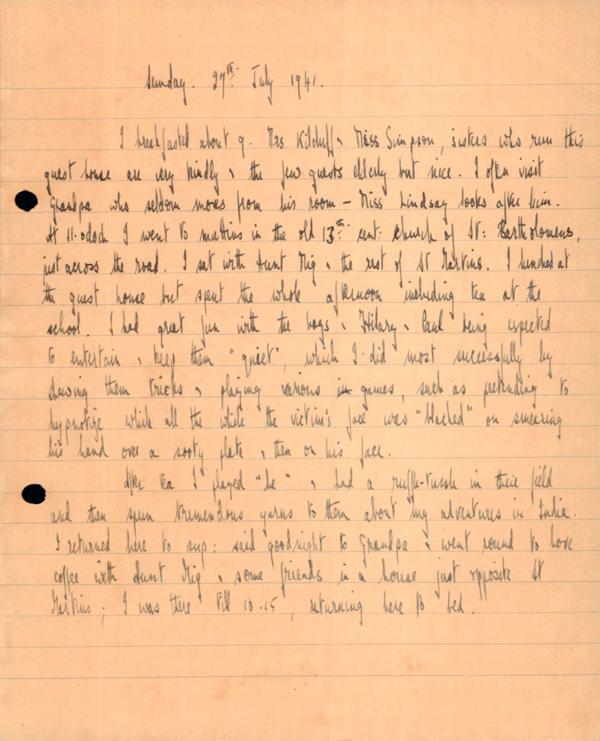 Sunday. 27th July 1941.
I breakfasted about 9. Mrs Kilduff & Miss Simpson, sisters who run this
guest house are very kindly & the few guests elderly but nice. I often visit
Grandpa who seldom moves from his room – Miss Lindsay looks after him.
At 11. oclock I went to mattins in the old 13th cent: church of St: Bartholomews,
just across the road. I sat with Aunt Mig & the rest of St Martins. I lunched at
the guest house but spent the whole afternoon including tea at the
school. I had great fun with the boys & Hilary & Paul being expected
to entertain & keep them "quiet", which I did most successfully by
showing them tricks & playing various games, such as pretending to
hypnotize while all the while the victim's face was "blacked" on smearing
his hand over a sooty plate & then on his face.
After tea I played "he" & had a ruffle-tussle in their field
and then spun tremendous yarns to them about my adventures in India.
I returned here to sup: said goodnight to Grandpa & went round to have
coffee with Aunt Mig & some friends in a house just opposite St
Martins. I was there till 10.15, returning here to bed.